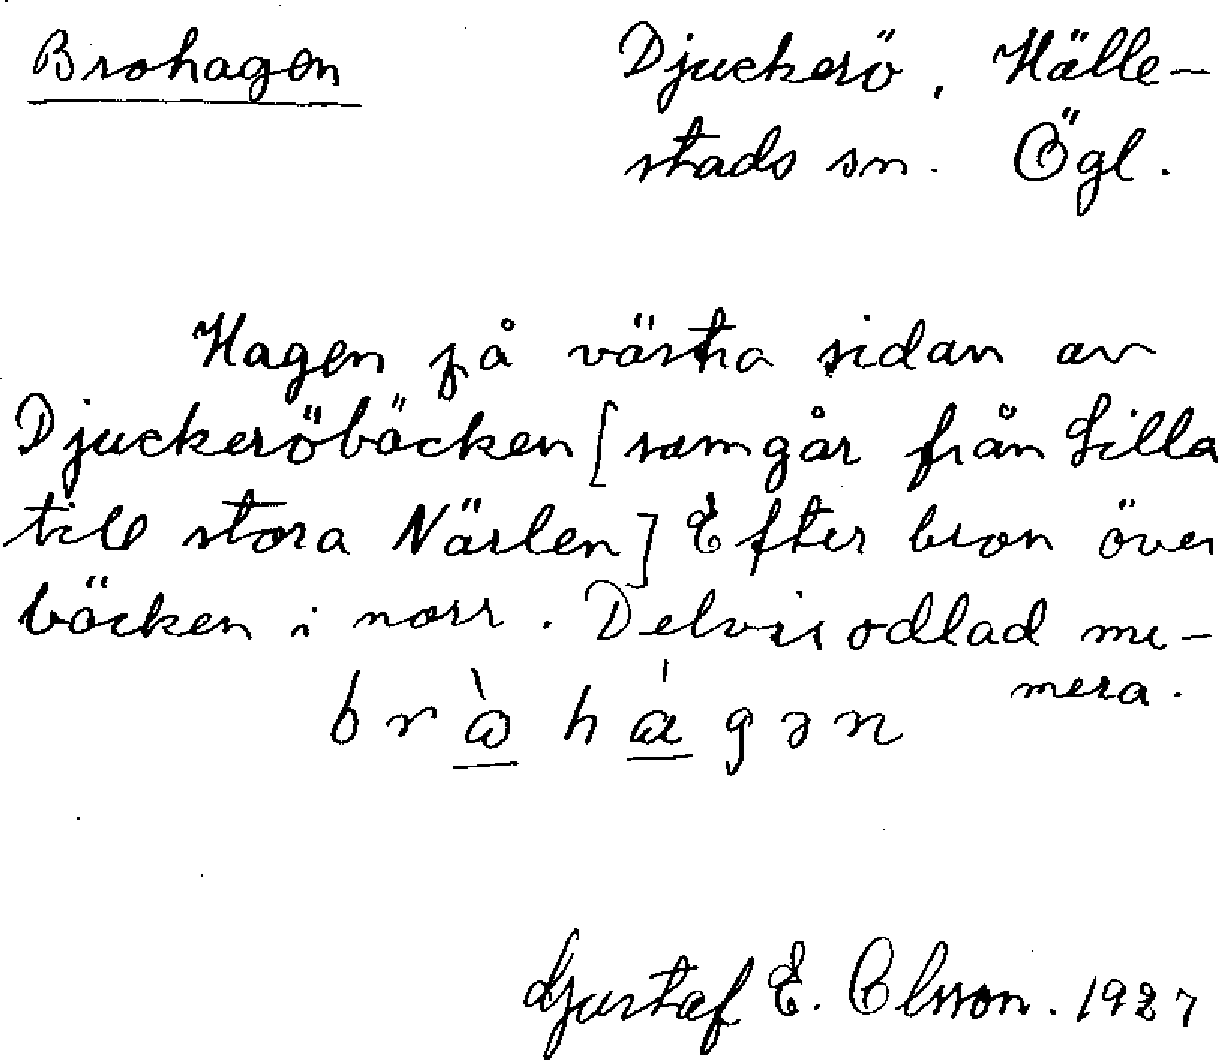 Brohagen
Djuckerö, Hälle-
stads sn. Ögl.
Hagen på västra sidan av
Djuckeröbäcken [som går från Lilla
till stora Närlen] Efter bron över
bäcken i norr. Delvis odlad me-
mera.
Gustaf E. Olsson. 1927